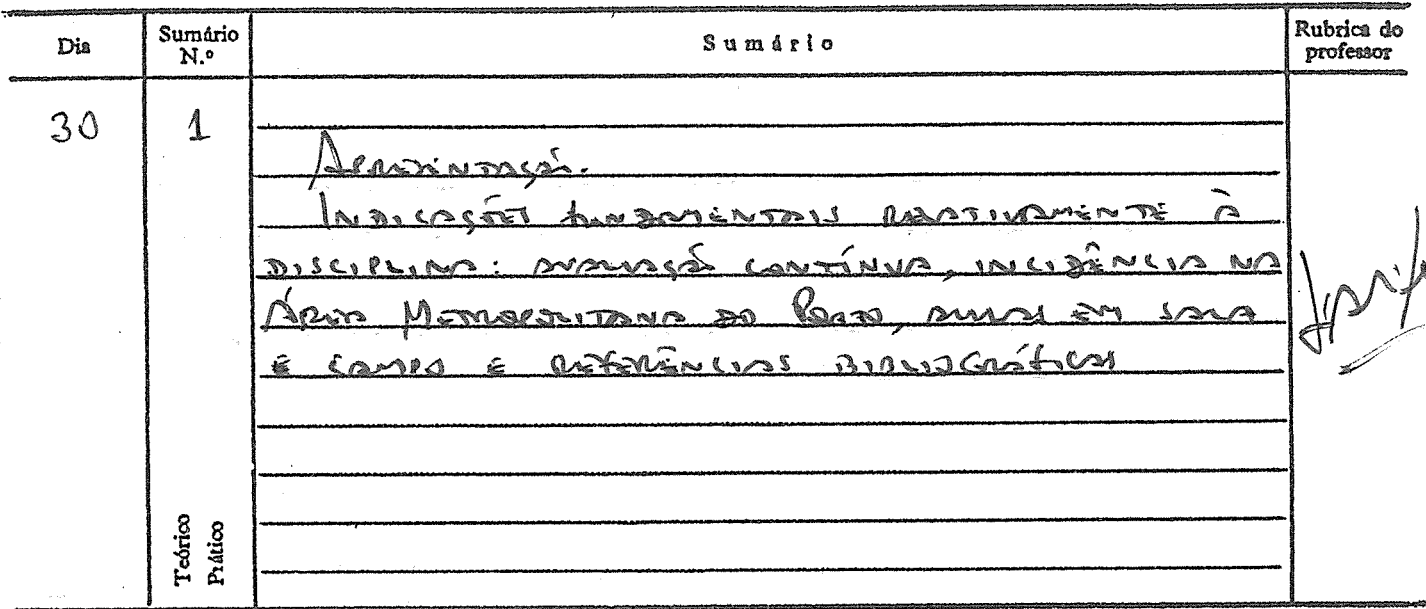 Dia Sumário N.º Sumário Rubrica do professor
30 1
Apresentação.
Indicações fundamentais relativamente à
disciplina: avaliação contínua, incidência na
Área Metropolitana do Porto, aulas em sala
e campo e referências bibliográficas
Teórico
Prático